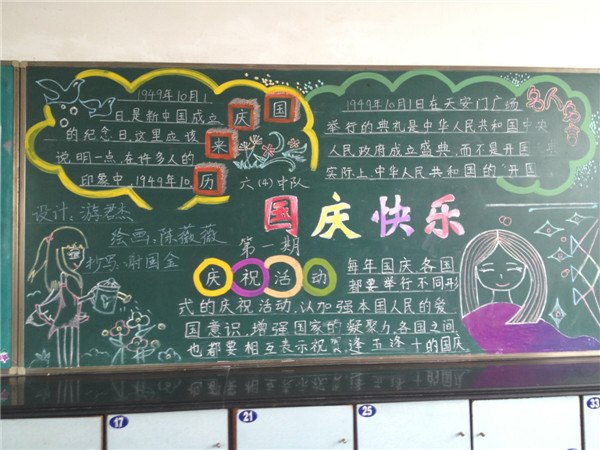 1949年10月1
日是新中国成立
的纪念日,这里应该
说明一点,在许多人的
印象中,1949年10.
国
庆
来
历
1949年10月1日在天安门广场
举行的典礼是中华人民共和国中央
人民政府成立盛典,而不是开国
实际上,中华人民共和国的"开国
名人名言
六(4)中队
国庆快乐
第一期
设计:游君杰
绘画:陈薇薇
抄写:谢国金
庆祝活动
每年国庆,各国
都要举行不同形
式的庆祝活动,以加强本国人民的爱
国意识,增强国家的凝聚力,各国之间
也都要相互表示祝贺,逢五逢十的国庆
17
21
25
33